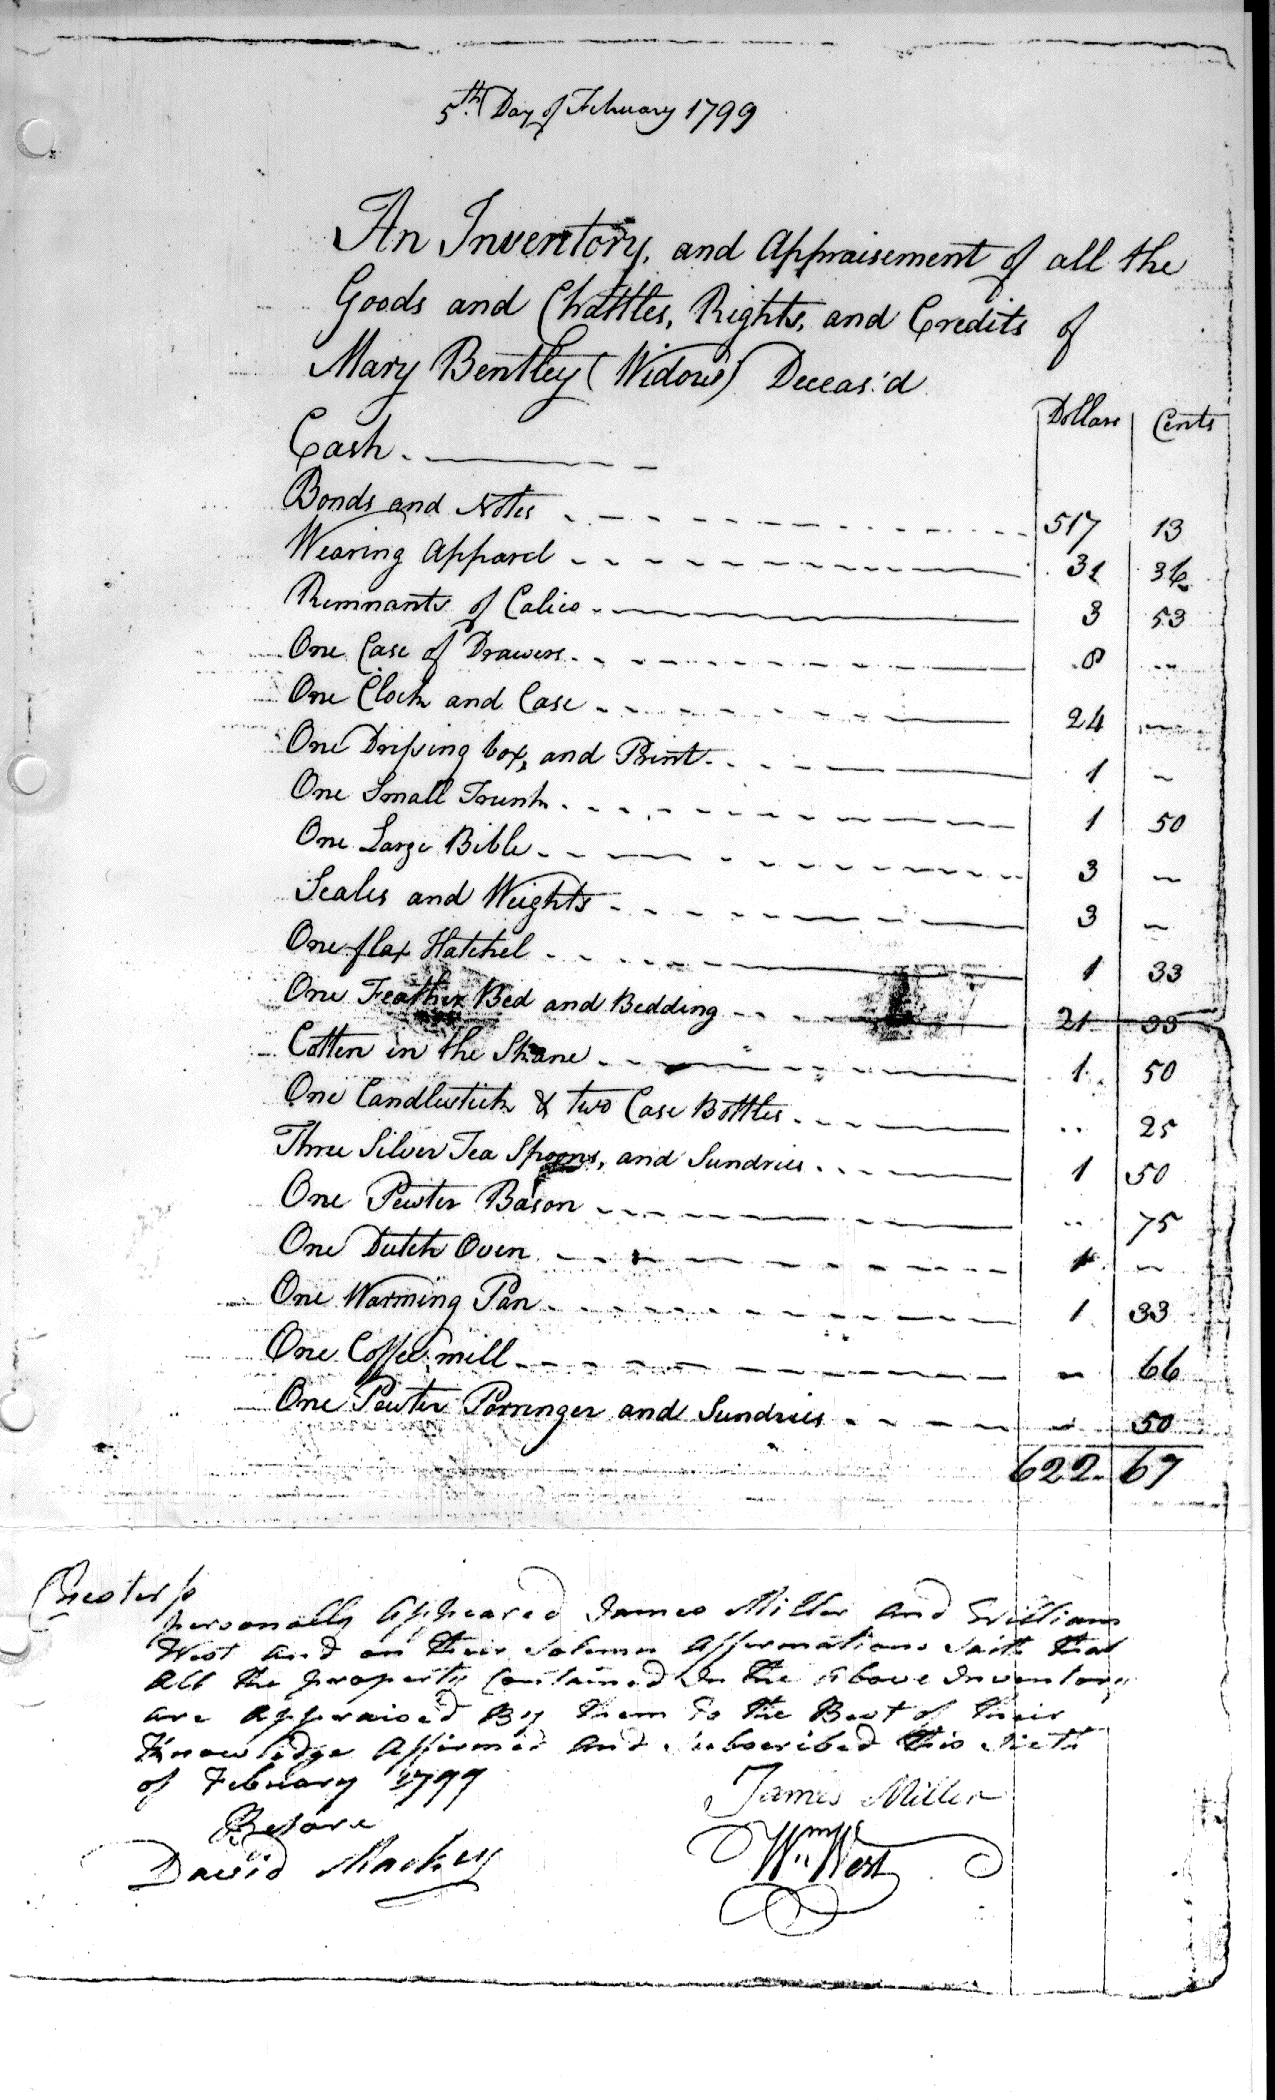 5th Day of February 1799
An Inventory, and Appraisement of all the
Goods and Chattles, Rights, and Credits of
Mary Bentley (Widow) Deceas'd
Dollars Cents
Cash
Bonds and Notes 517 13
Wearing Apparel 31 36
Remnants of Calico 3 53
One Case of Drawers 8
One Clock and Case 24
One Dressing box, and Print 1
One Small Trunk 1 50
One Large Bible 3
Scales and Weights 3
One flax Hatchel 1 33
One Feather Bed and Bedding 21 33
Cotten in the Skane 1 50
One Candlestick & two Case Bottles 25
Three Silver Tea Spoons, and Sundries 1 50
One Pewter Bason 75
One Dutch Oven 1
One Warming Pan 1 33
One Coffee mill 66
One Pewter Porringer and Sundries 50
622 67
Chester ss
personally Appeared James Miller and William
West and on their Solemn Affirmations Saith that
All the property Contained In the Above Inventory
are Appraised By them to the Best of their
Knowledge Affirmed and Subscribed this Sixth
of February 1799
Before
James Miller
Wm West
David Mackey